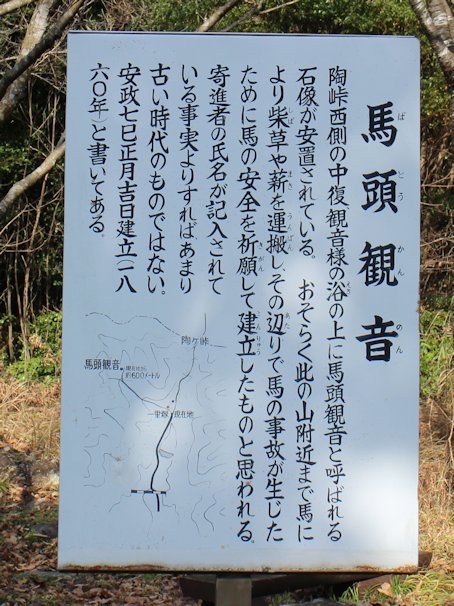 馬頭観音
ばとうかんのん
陶峠西側の中復観音様の浴の上に馬頭観音と呼ばれる
石像が安置されている。 おそらく此の山附近まで馬に
より柴草や薪を運搬し、その辺りで馬の事故が生じた
ために馬の安全を祈願して建立したものと思われる。
寄進者の氏名が記入されて
いる事実よりすれば、あまり
古い時代のものではない。
安政七巳正月吉日建立(一八
六〇年)と書いてある。
陶ヶ峠
馬頭観音
現在地から
約600メートル
一里塚
現在地